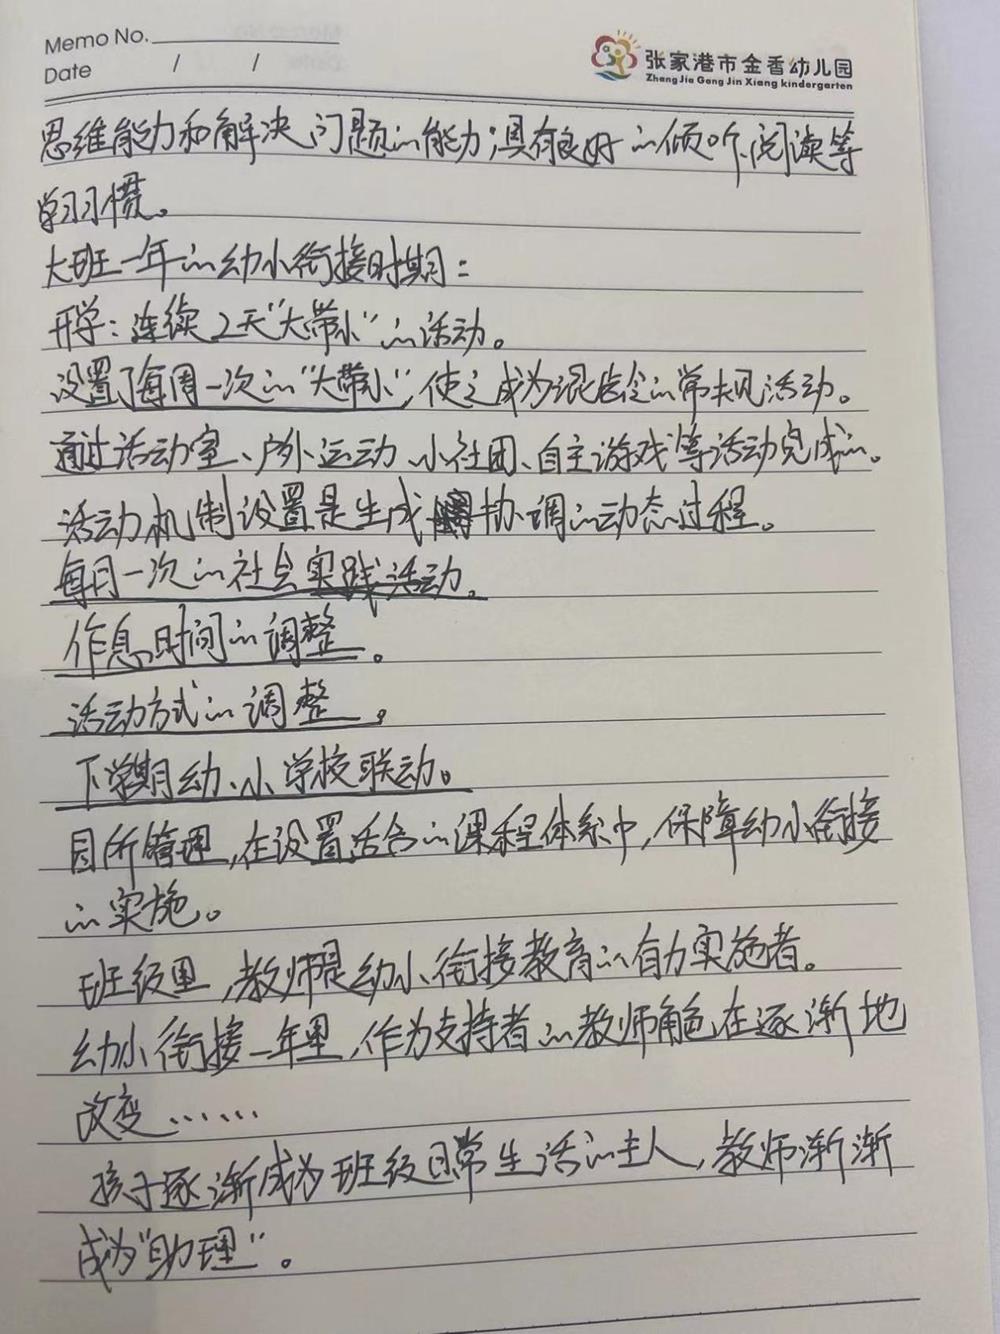 Memo No.
Date / /
张家港市金香幼儿园
Zhang Jia Gang Jin Xiang kindergarten
思维能力和解决问题的能力;具有良好的倾听、阅读等
学习习惯。
大班一年的幼小衔接时期:
开学:连续2天"大带小"的活动。
设置了每周一次的"大带小",使之成为混龄的常规活动。
通过活动室、户外运动、小社团、自主游戏等活动完成的。
活动机制设置是生成协调的动态过程。
每月一次的社会实践活动。
作息时间的调整。
活动方式的调整。
下学期幼、小学校联动。
园所管理,在设置适合的课程体系中,保障幼小衔接
的实施。
班级里,教师是幼小衔接教育的有力实施者。
幼小衔接一年里,作为支持者的教师角色在逐渐地
改变……
孩子逐渐成为班级日常生活的主人,教师渐渐
成为"助理"。